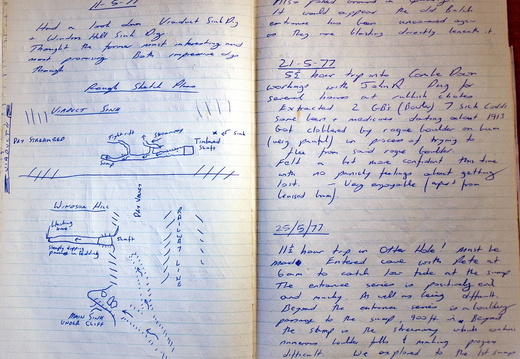 11-5-77
Had a look down Viaduct Sink Dig
+ Windsor Hill Sink Dig
Thought the former most interesting and
most promising. Both impressive digs
though
Rough Sketch Plans
VIADUCT SINK
DRY STREAMBED
VIADUCT
Tight rift
Streamway
Timbered
Shaft
* of Sink
Sump
WINDSOR HILL
DRY VALLEY
RAILWAY LINE
Shaft
Steeply dipping
passage in bedding
MAIN SINK
UNDER CLIFF
It would appear the old Balch
entrance has been uncovered again
as they are blasting directly beneath it
21-5-77
5½ hour trip into Combe Down
workings with John R. Dug for
several hours at rubbish
Extracted 2 GB's (Bowler) 7 sick
Same beer + medicines dating about 1913
Got clobbered by rogue boulder on bum
(very painful) in process of trying to
flee from said rogue boulder
Felt a bit more confident this time
with no panicky feelings about getting
lost. - Very enjoyable (apart from
bruised bum).
25/5/77
11½ hour trip in Otter Hole! Must be
mad. Entered cave with Pete at
6am to catch low tide at the sump
The entrance series is positively evil
and mucky. As well as being difficult.
Beyond the entrance series is a bouldery
passage to the sump 900ft in. Beyond
the sump is the streamway which
numerous boulder falls + making progress
difficult. We explored to the 1st sump